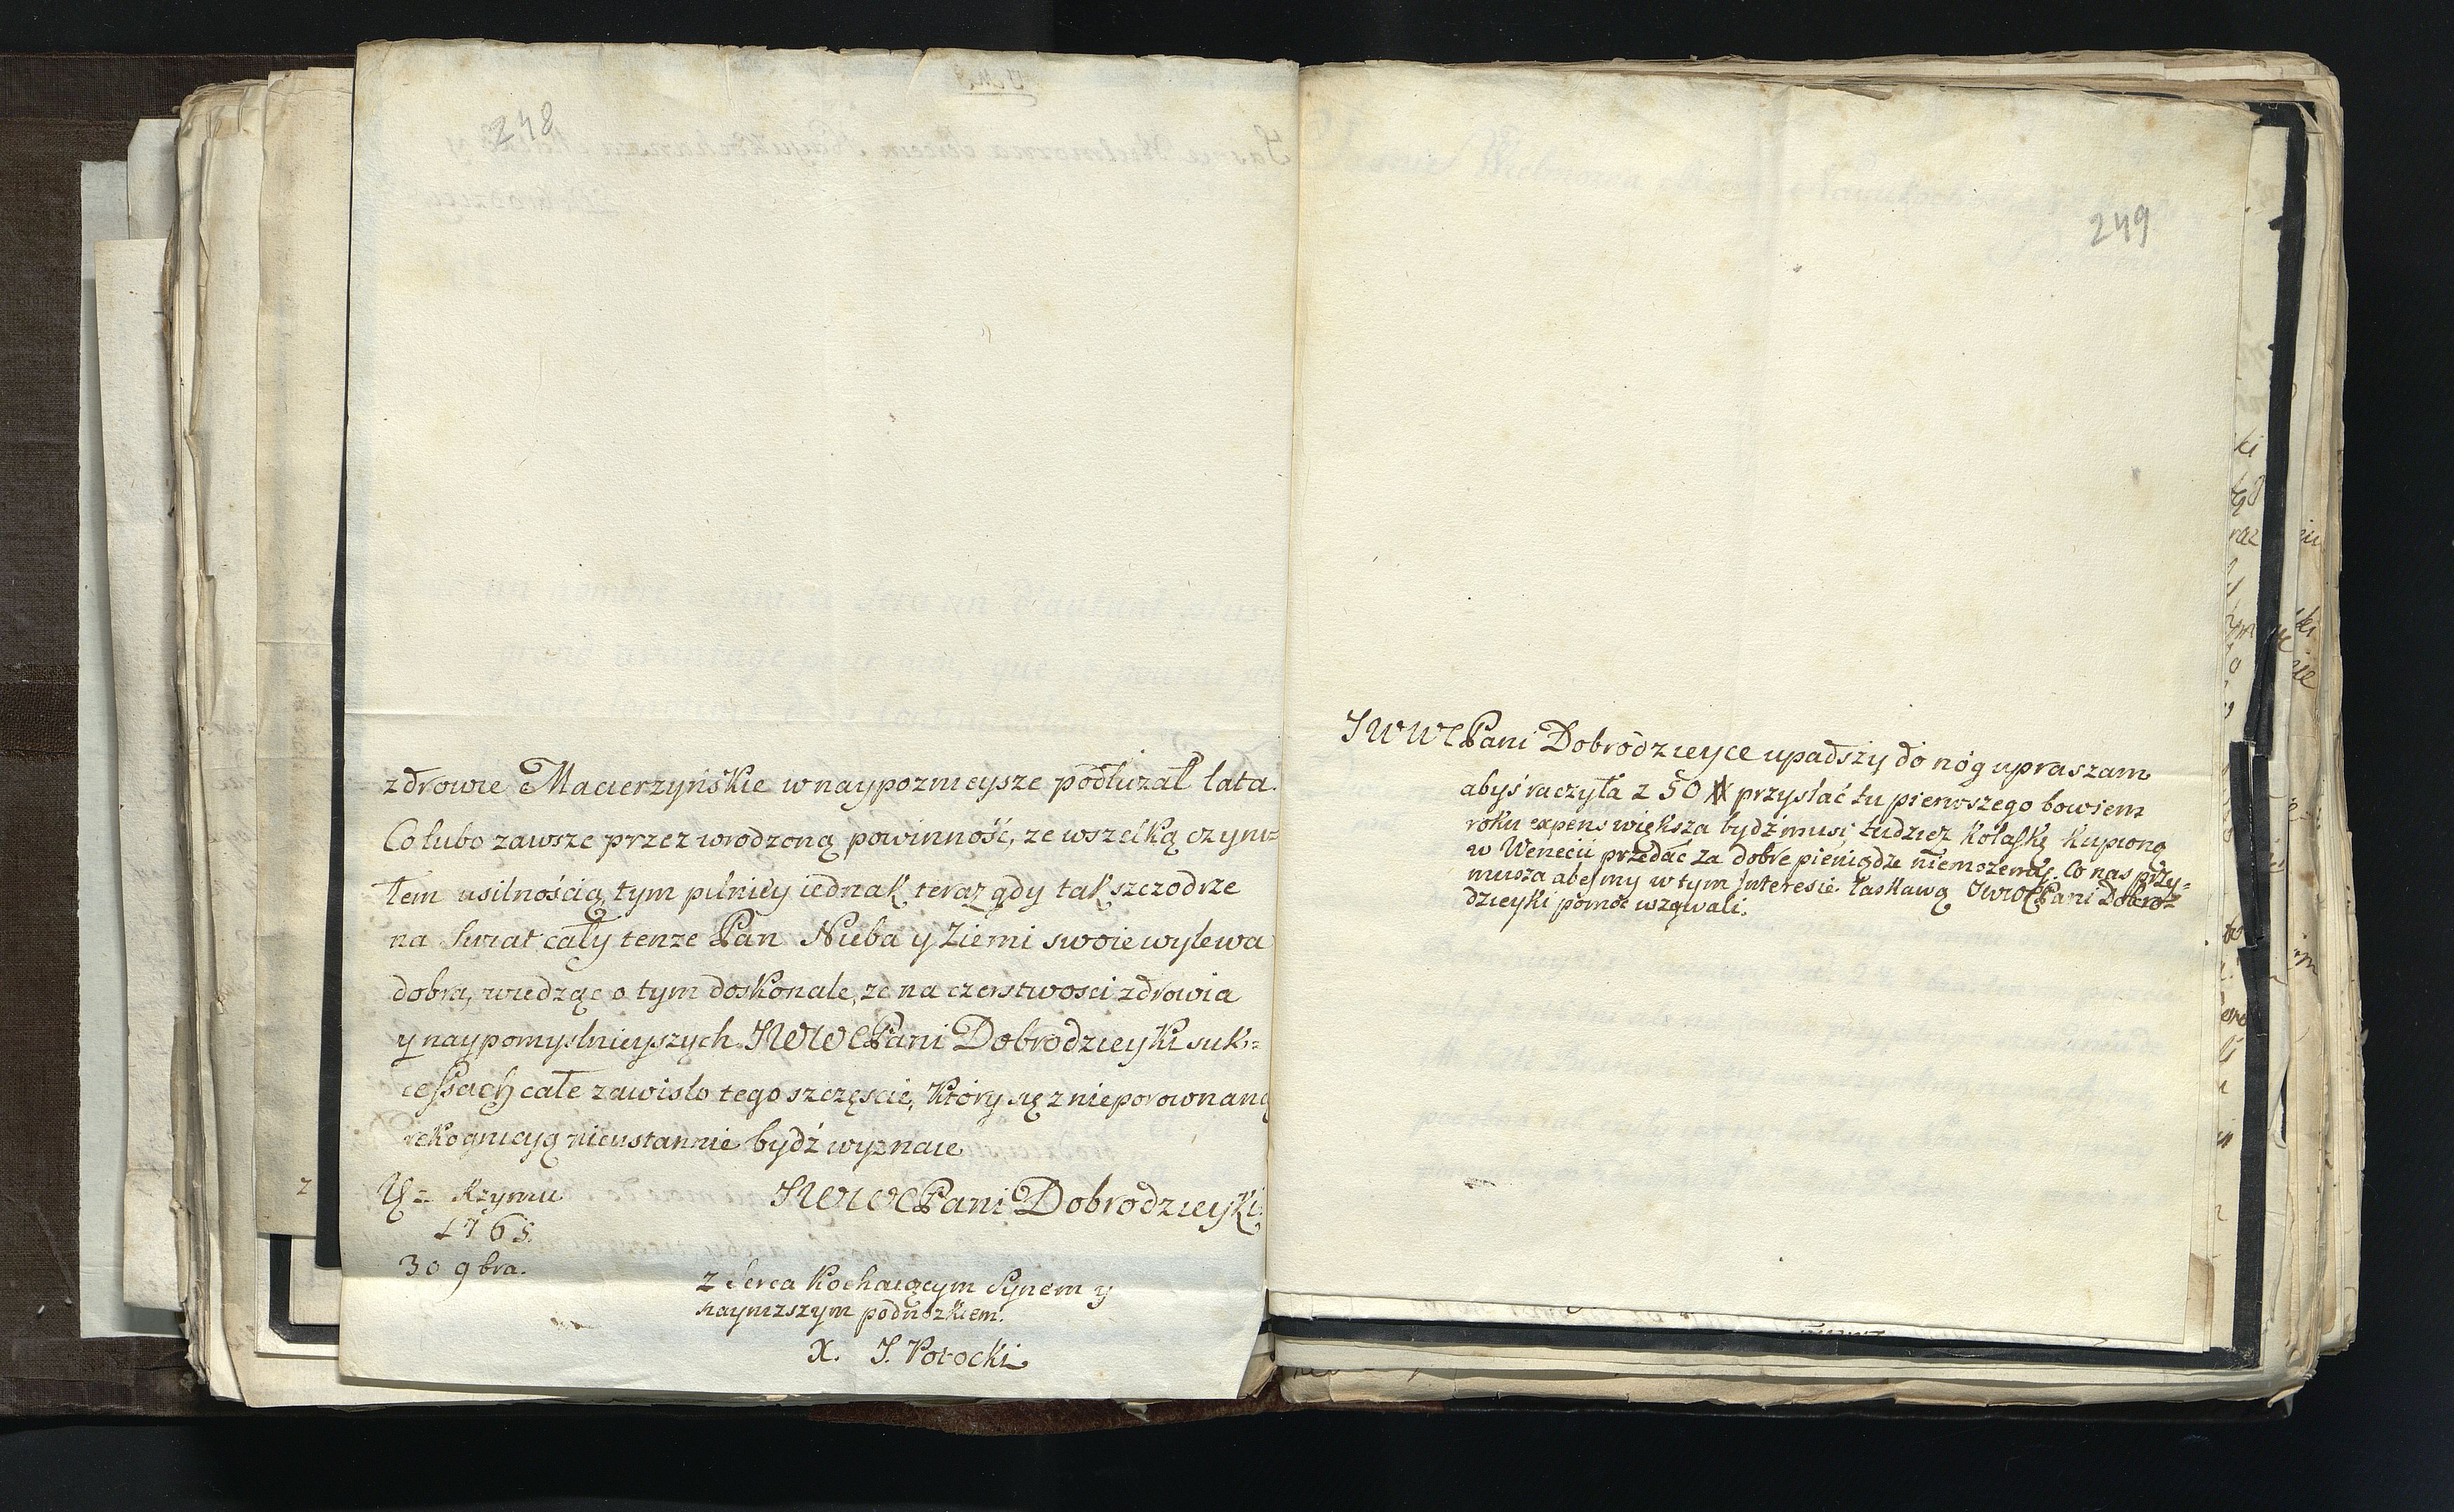 248
zdrowie Macierzyńskie w naypoznieysze podłuzał lata.
Co lubo zawsze przez wrodzoną powinność, ze wszelką czyni=
łem usilnością, tym pilniey iednak teraz gdy tak szczodrze
na Swiat cały tenze Pan Nieba y Ziemi swoie wylewa
dobra, wiedząc o tym doskonale, ze na czerstwosci zdrowia
y naypomyslnieyszych JWWPani Dobrodzieyki suk=
cessach całe zawisło tego szczęscie, który się z nieporownaną
rekognicyą nieustannie bydź wyznaie
JWWPani Dobrodzieyki
z Rzymu
1765.
30 9bra.
z Serca Kochaiącym Synem y
nayniższym podnózkiem.
X. J. Potocki
249
JWWPani Dobrodzieyce upadszy do nóg upraszam
abyś raczyła z 50 przysłać tu pierwszego bowiem
roku expens większa bydź musi, tudziez kolaskę kupioną
w Wenecii przedać za dobre pieniądze niemozemy. Co nas przy=
musza abesmy w tym Interesie łaskawą JWWPani Dobro=
dzieyki pomoc wzywali.